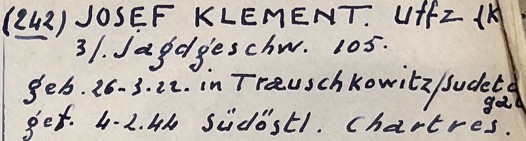 (242) JOSEF KLEMENT. Uffz {K
3/. Jagdgeschw. 105.
geb. 26-3.22. in Trauschkowitz/Sudet
gau
gef. 4-2.44 Südöstl. Chartres.